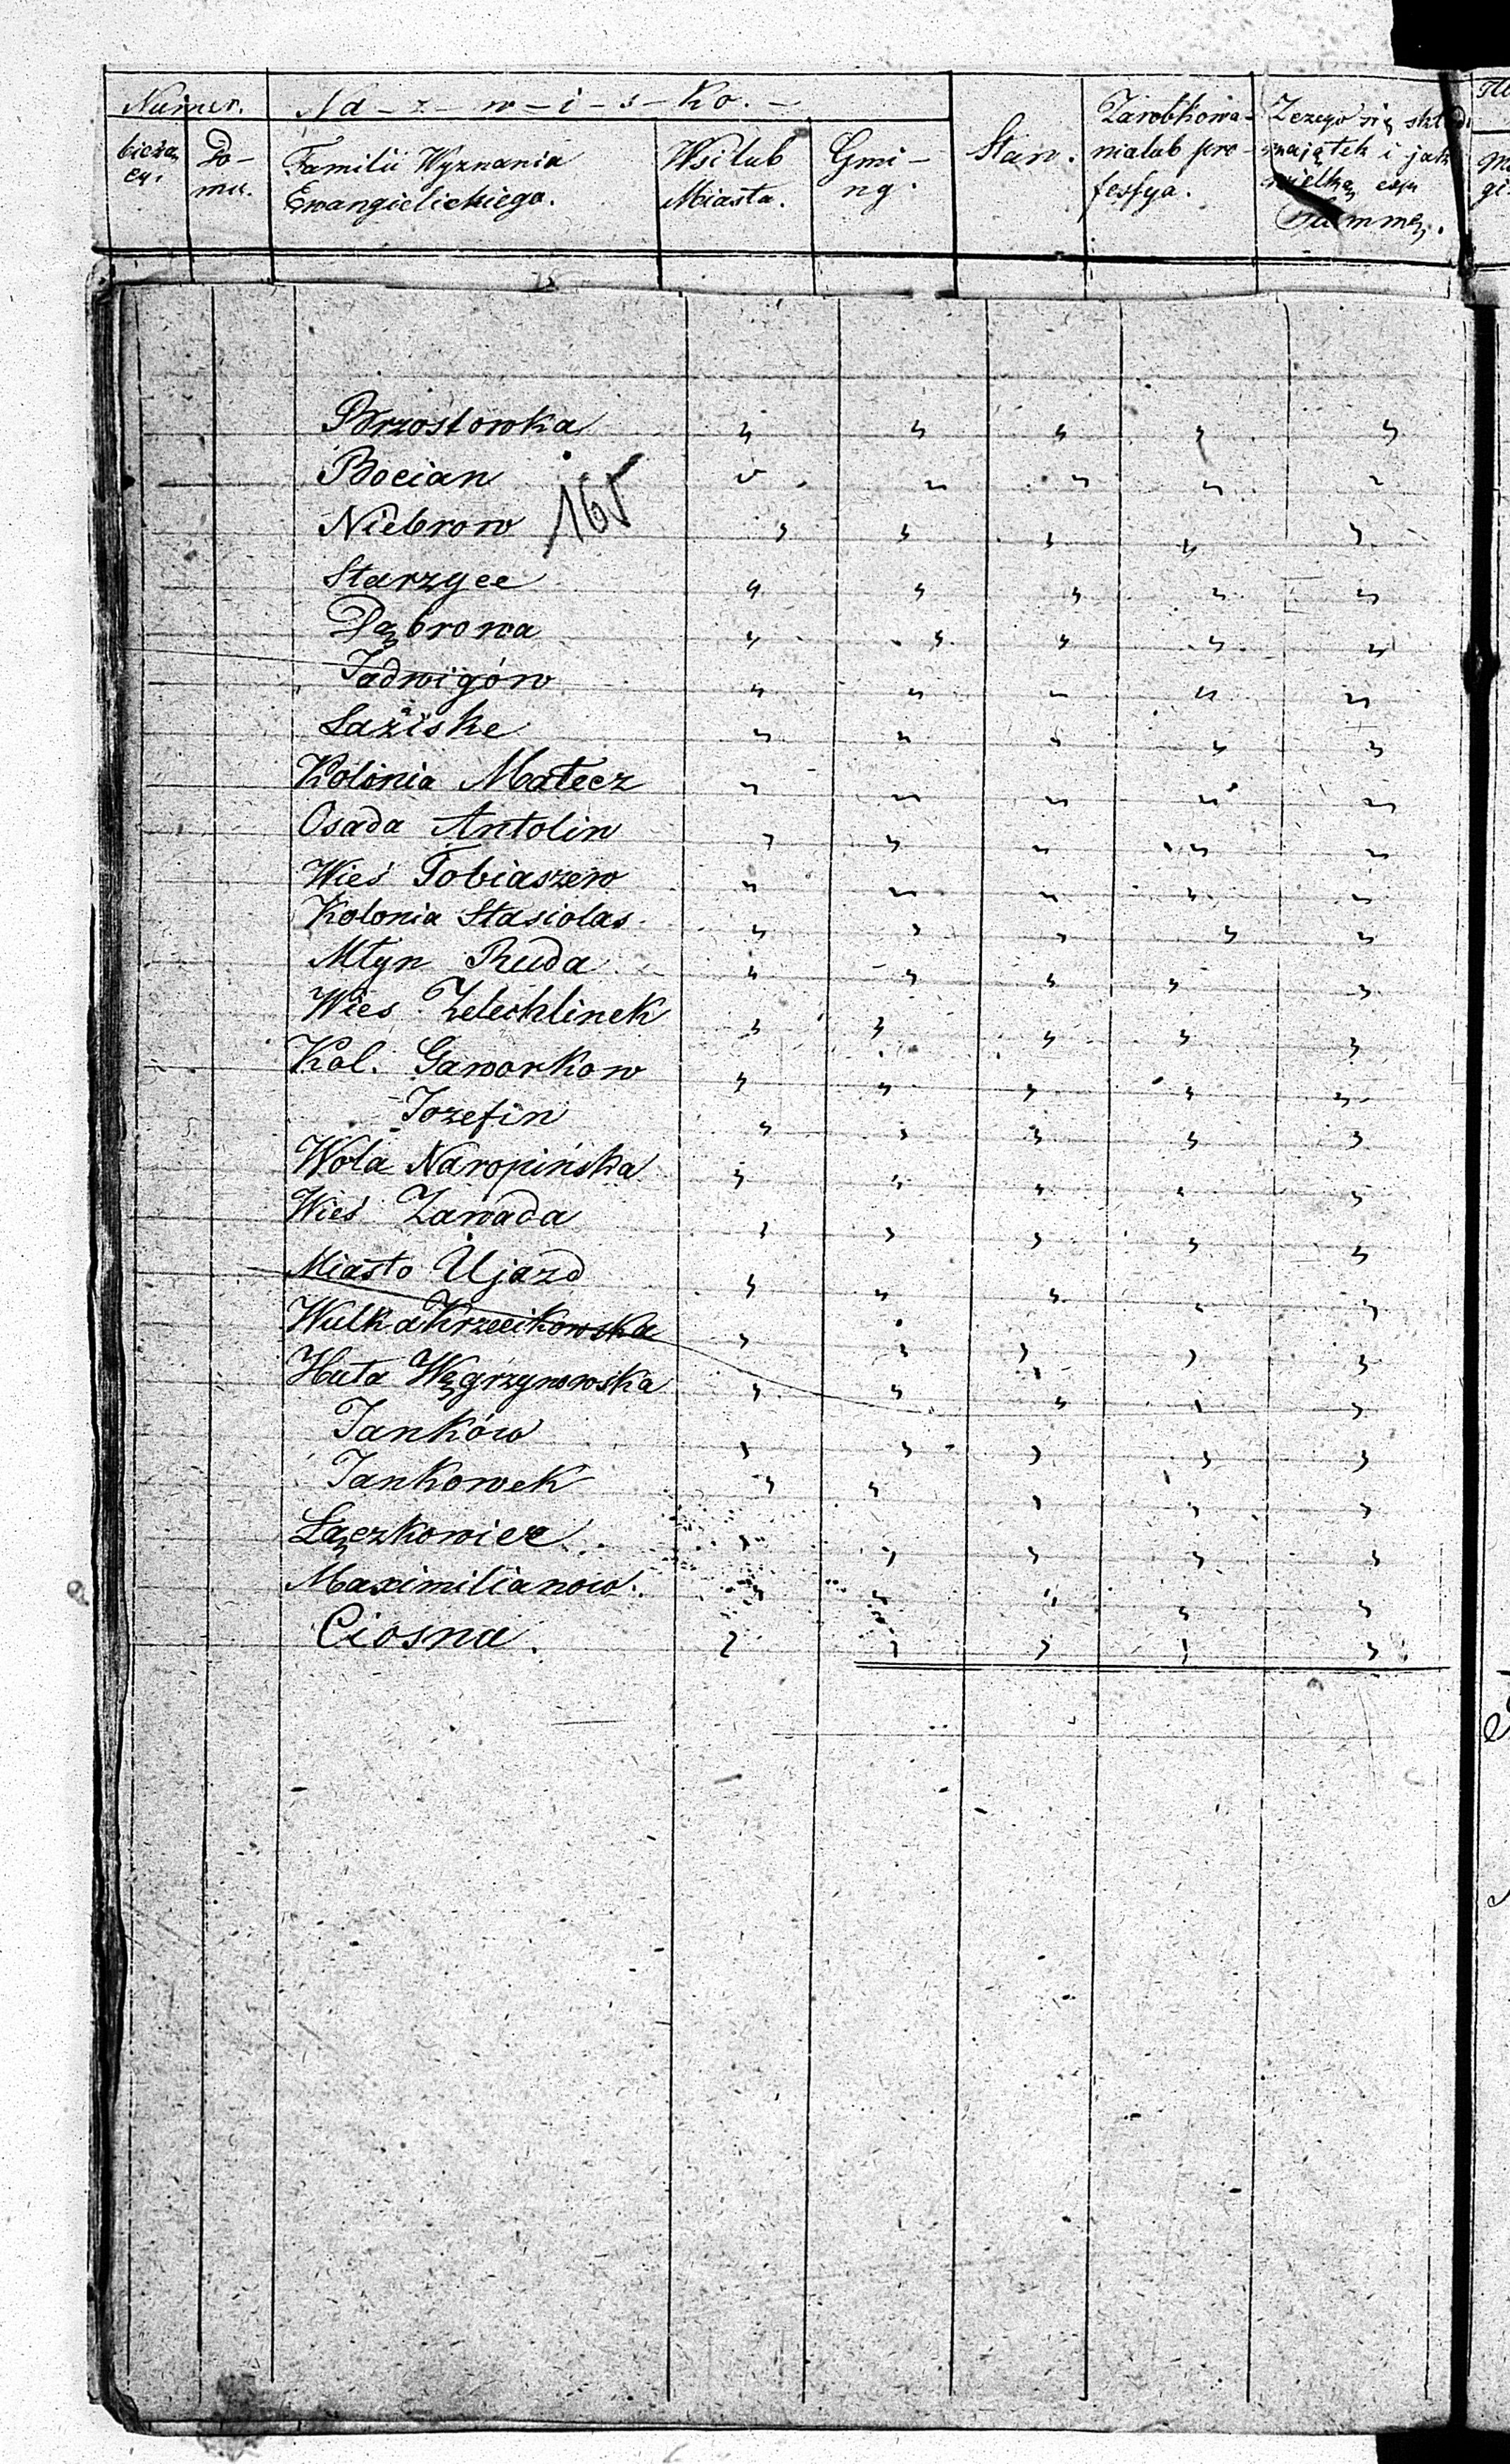 Numer. Na-z-w-i-s-ko.-
bieżą cy. Do- mu. Familii Wyznania Ewangielickiego. Wsi lub Miasta. Gmi- ny. Stan. Zarobkowa- nia lub pro- fesfya. Z czego się składa majątek i jak wielką czyni Summę.
Brzostowka " " " " "
Bocian " " " " "
165
Niebrow " " " " "
Starzyce " " " " "
Dąbrowa " " " " "
Jadwigów " " " " "
Łaziska " " " " "
Kolonia Małecz " " " " "
Osada Antolin " " " " "
Wieś Tobiaszew " " " " "
Kolonia Stasiolas " " " " "
Młyn Ruda " " " " "
Wies Zelechlinek " " " " "
Kol. Gaworkow " " " " "
Jozefin " " " " "
Wola Naropińska " " " " "
Wieś Zawada " " " " "
Miasto Ujazd " " " " "
Wulka Krzecikowska " " " " "
Huta Węgrzynowska " " " " "
Janków " " " " "
Jankowek " " " " "
Łączkowice " " " " "
Maximilianow. " " " " "
Ciosna. " " " " "